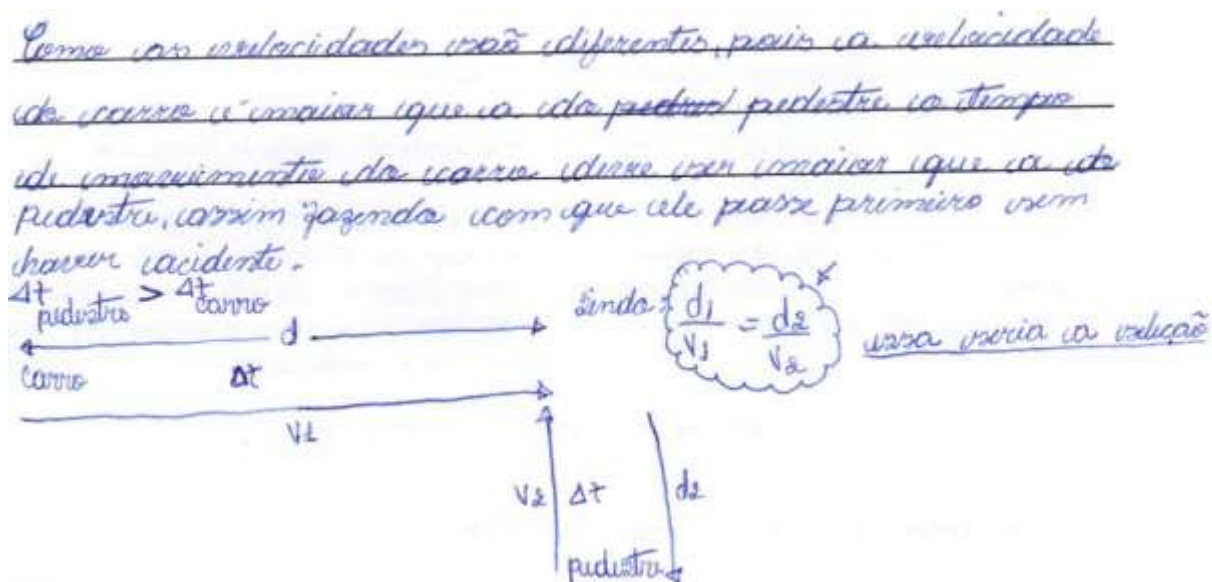 Como as velocidades são diferentes, pois a velocidade
do carro é maior que a do pedestre o tempo
de movimento do carro deve ser maior que a do
pedestre, assim fazendo com que ele passe primeiro sem
haver acidente.
Δt pedestre > Δt carro
Sendo: d1/V1 = d2/V2 essa seria a solução
d
carro Δt
V1
V2 Δt d2
pedestre